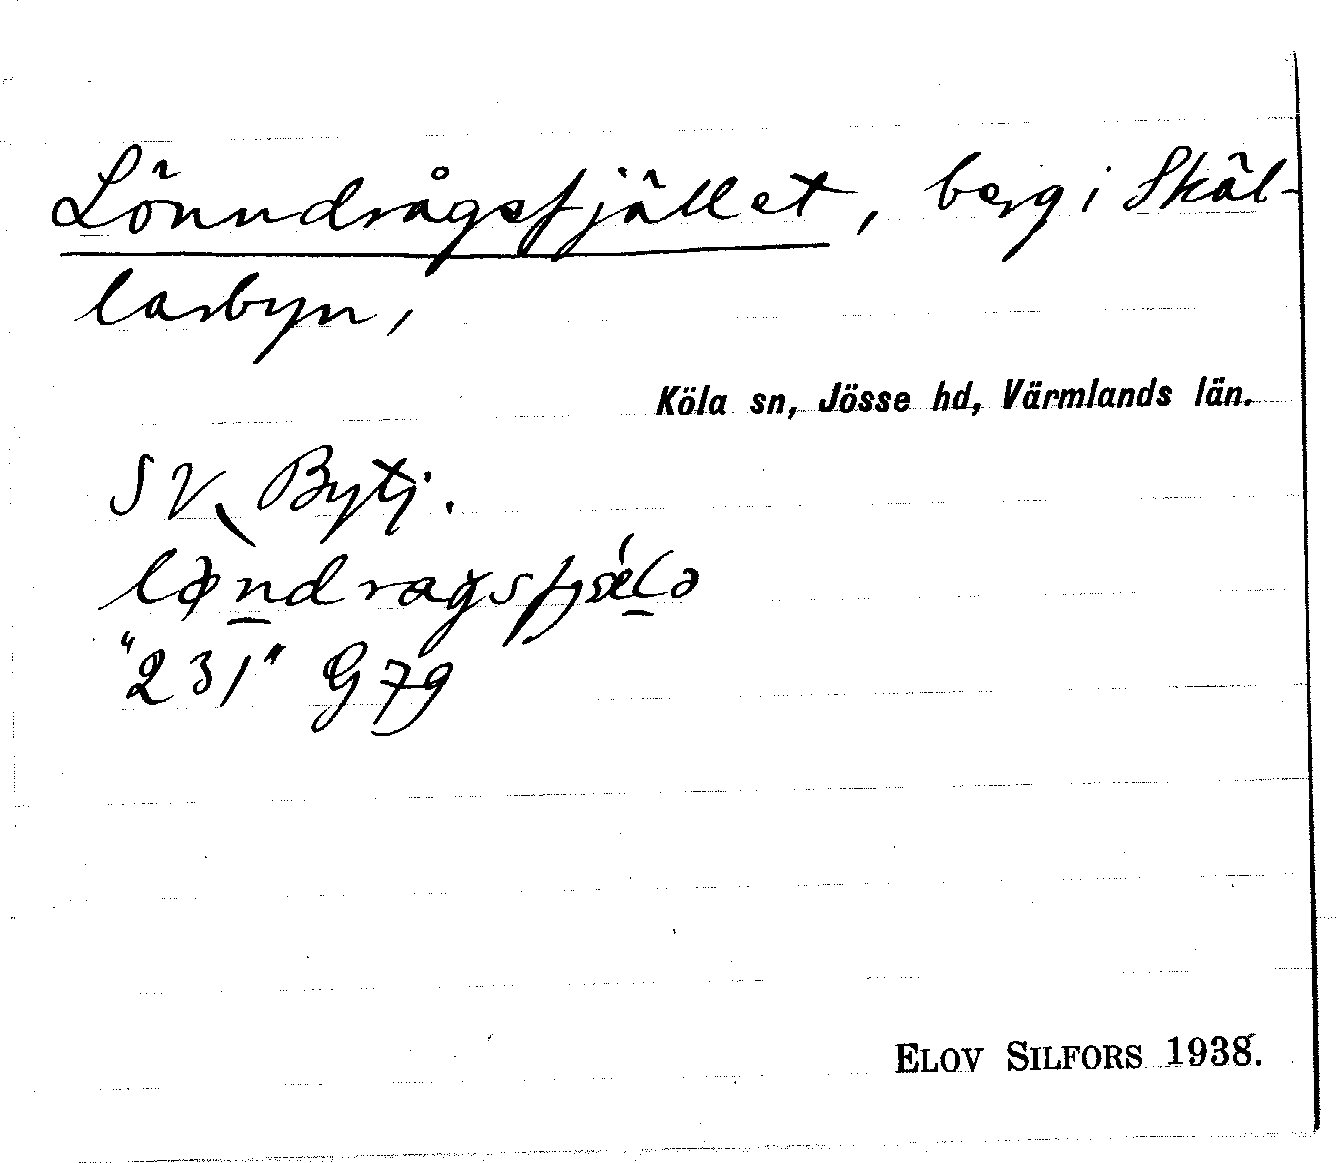 Lönndrågsfjället, berg i Skäl-
larbyn,
Köla sn, Jösse hd, Värmlands län.
SV Bytj.
"231" G7g
ELOV SILFORS 1938.